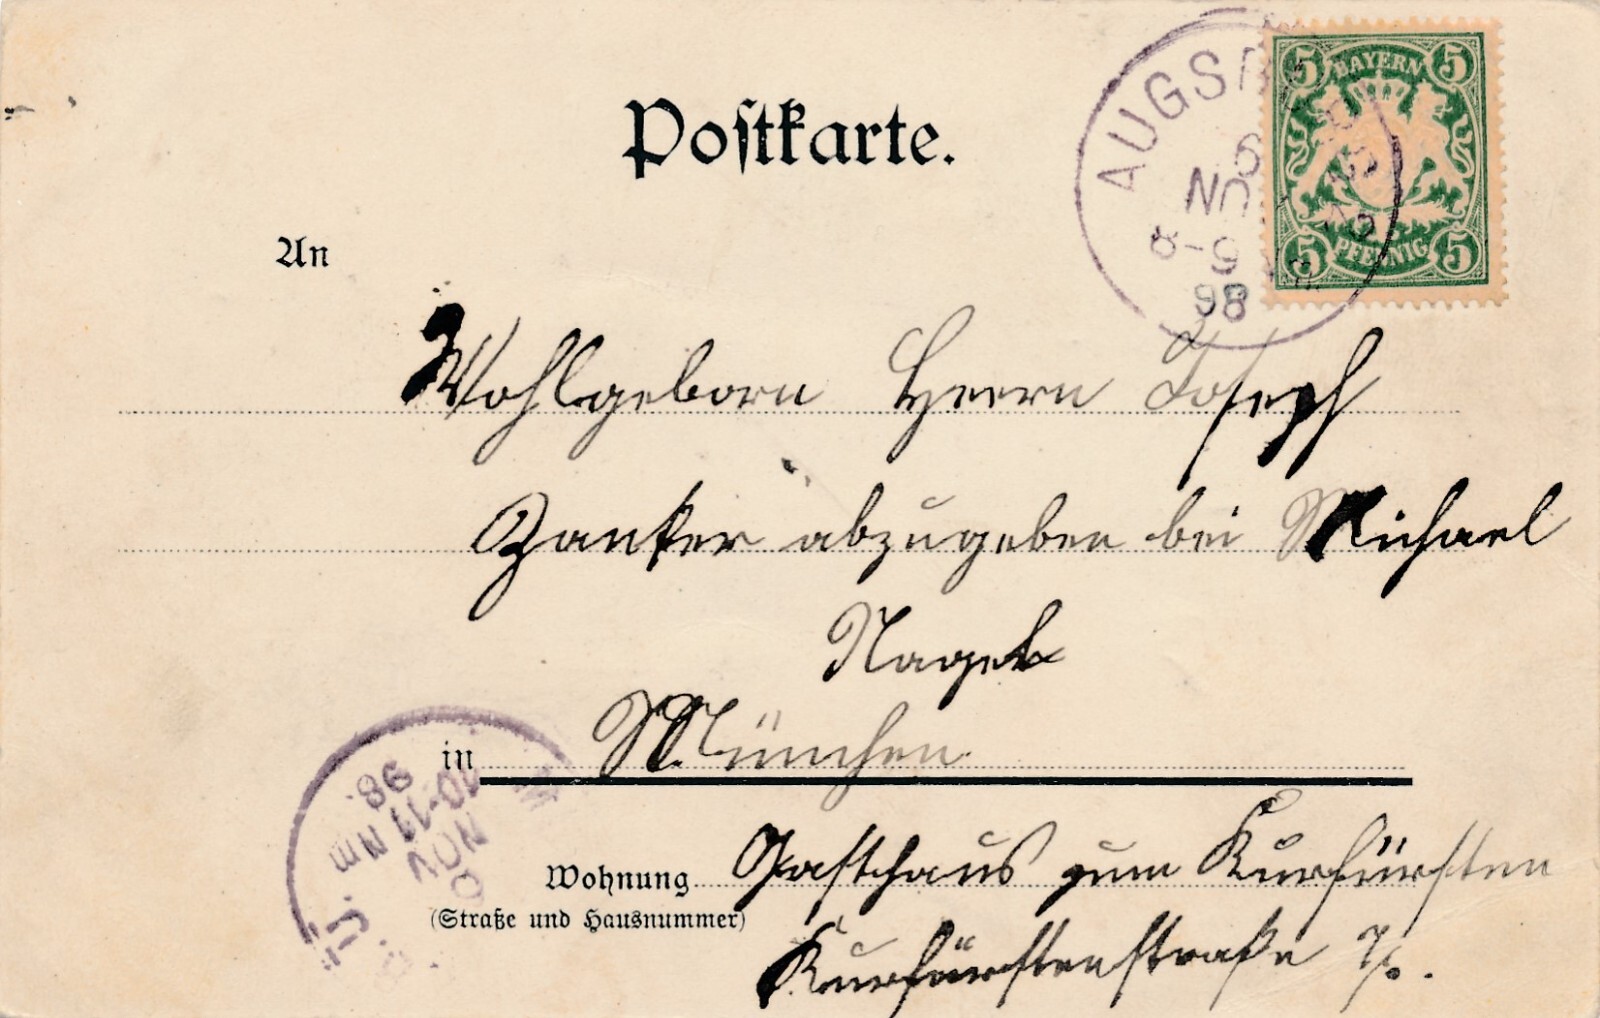 Postkarte.
AUGSB
6
NOV
8-9
98
BAYERN
5 5
5 5
PFENNIG
An
Wohlgeborn Herrn Joseph
Zanker abzugeben bei Michael
Nagel
in München
98.
10-11 Nm
NOV
Wohnung Gasthaus zum Kurfürsten
(Straße und Hausnummer)
Kurfürstenstraße